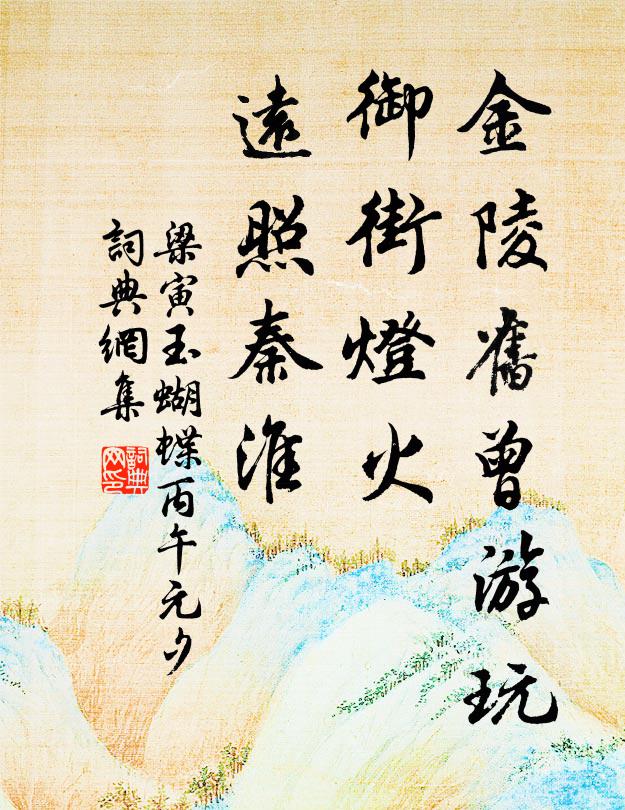 金陵舊曾游玩
御街燈火
遠照秦淮
梁寅玉蝴蝶丙午元夕
詞典網集
詞典
网印